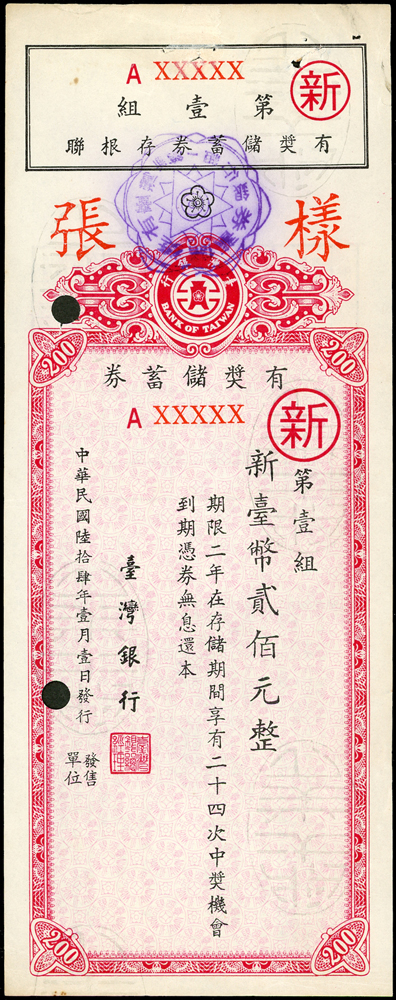 A XXXXX
新
第壹組
有獎儲蓄券存根聯
樣張
BANK OF TAIWAN
200
200
有獎儲蓄券
A XXXXX
新
第壹組
新臺幣貳佰元整
期限二年在存儲期間享有二十四次中獎機會
到期憑券無息還本
臺灣銀行
中華民國陸拾肆年壹月壹日發行
發售
單位
200
200